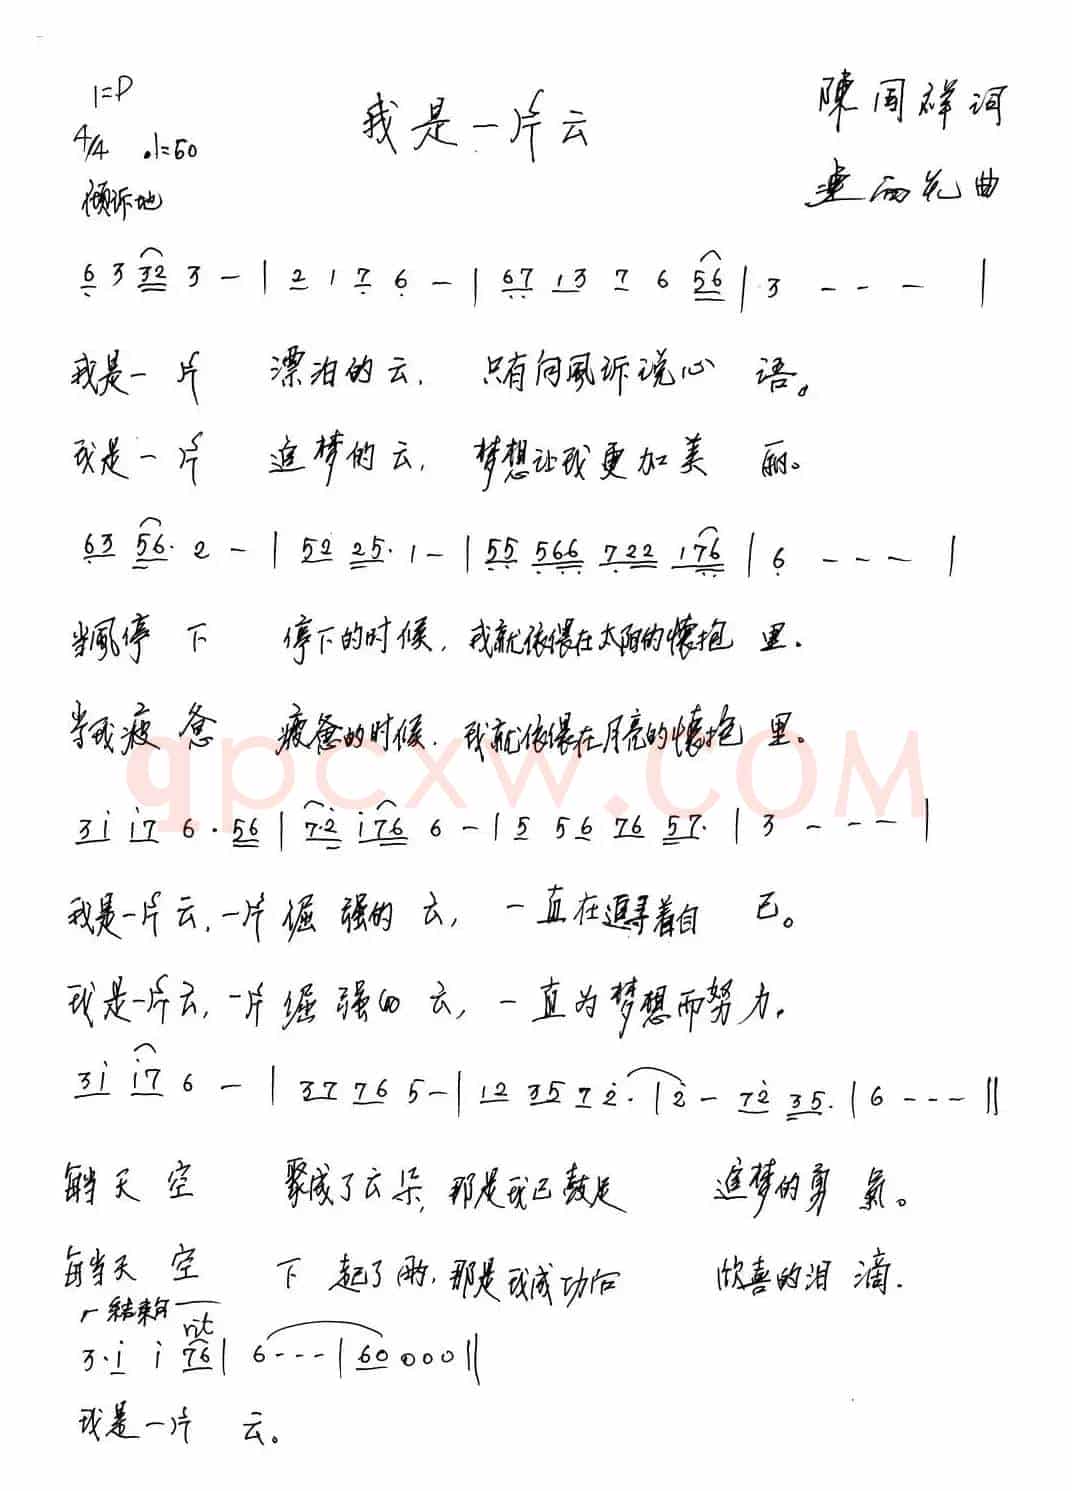 1=D
我是一片云
陳国祥词
4/4 ♩=50
倾诉地
雨花曲
6 3 32 3 - | 2 1 7 6 - | 67 13 7 6 56 | 3 - - - |
我是一片 漂泊的云, 只有向風诉说心 语。
我是一片 追梦的云, 梦想让我更加美 丽。
63 56· 2 - | 52 25· 1 - | 55 566 722 176 | 6 - - - |
当風停 下 停下的时候, 我就依偎在太阳的懷抱 里.
当我疲 惫 疲惫的时候. 我就依偎在月亮的懷抱 里。
qpcxw.COM
31 17 6 · 56 | 7·2 176 6 - | 5 5 6 76 57· | 3 - - - |
我是一片云, 一片倔 强的 云, 一直在追寻着自 己。
我是一片云, 一片倔 强的 云, 一直为梦想而努力.
31 17 6 - | 37 76 5 - | 12 35 7 2· | 2 - 72 35· | 6 - - - ||
每当天 空 聚成了云朵, 那是我已鼓足 追梦的勇 氣。
每当天 空 下 起了雨, 那是我成功后 欣喜的泪 滴.
结束句
rit
3·1 1 76 | 6 - - - | 60 0 0 0 ||
我是一片 云。